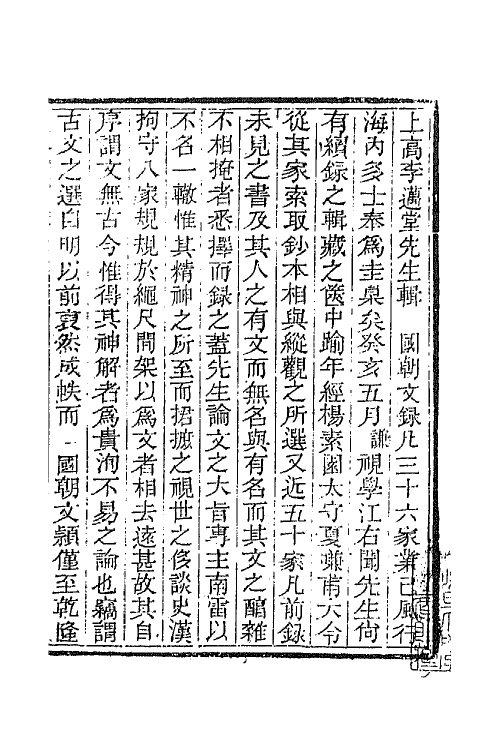 上高李邁堂先生輯　國朝文錄凡三十六家業已風行
海內多士奉爲圭臬矣癸亥五月謙視學江右聞先生尙
有續錄之輯藏之篋中踰年經楊素園太守夏謙甫大令
從其家索取鈔本相與縱觀之所選又近五十家凡前錄
未見之書及其人之有文而無名與有名而其文之醕雜
不相掩者悉擇而錄之蓋先生論文之大旨專主南雷以
不名一轍惟其精神之所至而捃摭之視世之侈談史漢
拘守八家規規於繩尺間架以爲文者相去遠甚故其自
序謂文無古今惟得其神解者爲貴洵不易之論也竊謂
古文之選自明以前裒然成帙而　國朝文穎僅至乾隆